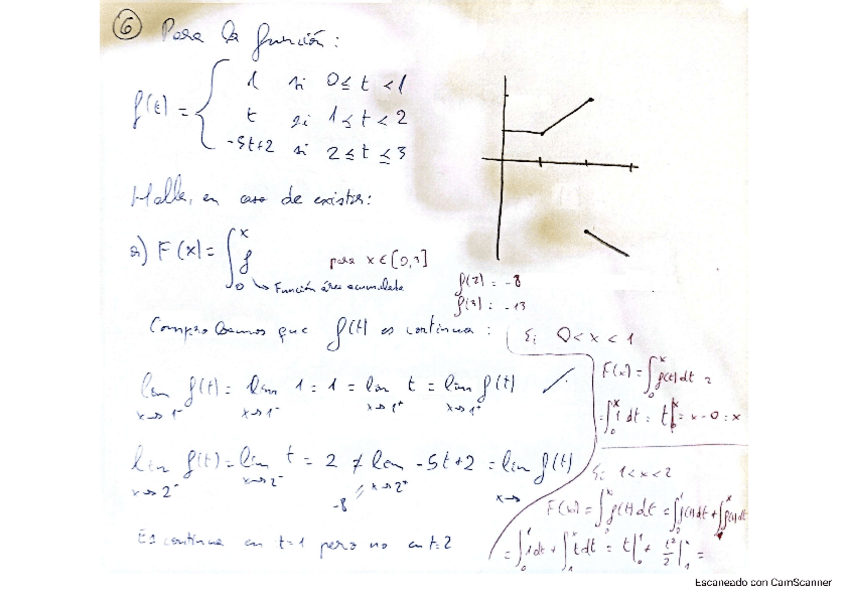 ⑥ Para la función:
f(t) = { 1 si 0 ≤ t < 1
t si 1 ≤ t < 2
-5t+2 si 2 ≤ t ≤ 3
Halle, en caso de existir:
a) F(x) = ∫₀ˣ f para x ∈ [0,3]
↳ Función área acumulada
f(2) = -8
f(3) = -13
Comprobamos que f(t) es continua:
lim x→1⁻ f(t) = lim x→1⁻ 1 = 1 = lim x→1⁺ t = lim x→1⁺ f(t) ✓
lim x→2⁻ f(t) = lim x→2⁻ t = 2 ≠ lim x→2⁺ -5t+2 = lim x→ f(t)
-8
Es continua en t=1 pero no en t=2
Si 0 < x < 1
F(x) = ∫₀ˣ f(t) dt =
= ∫₀ˣ 1 dt = t|₀ˣ = x - 0 = x
Si 1 < x < 2
F(x) = ∫₀ˣ f(t) dt = ∫₀¹ f(t) dt + ∫₁ˣ f(t) dt
= ∫₀¹ 1 dt + ∫₁ˣ t dt = t|₀¹ + t²/2|₁ˣ =
Escaneado con CamScanner